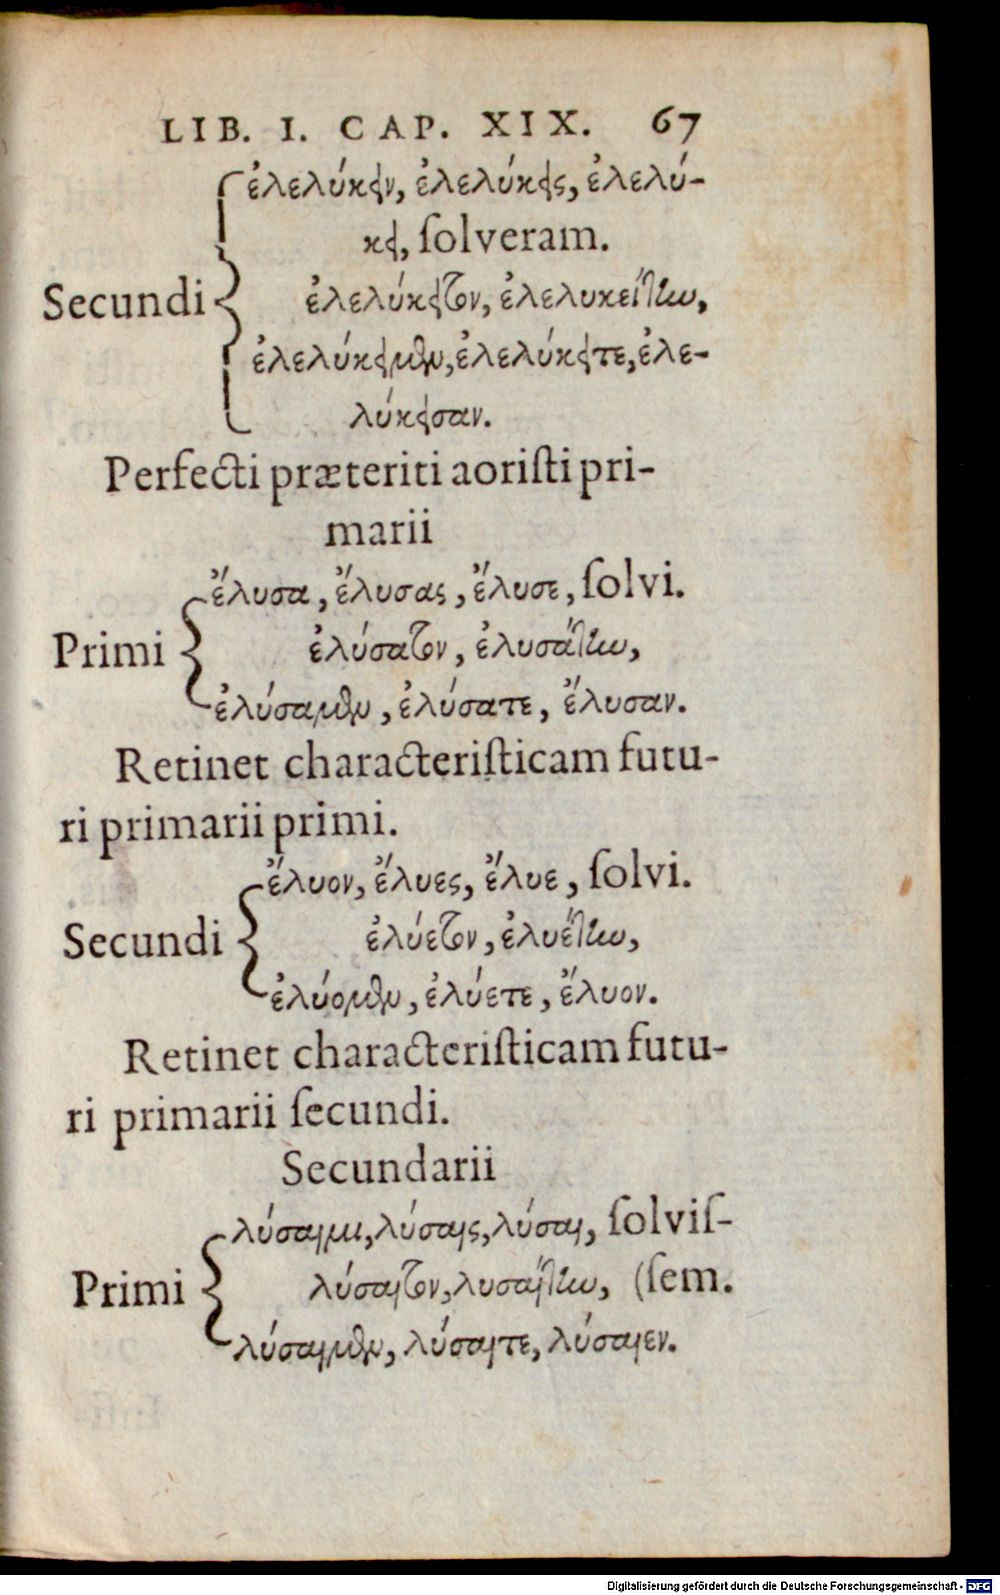 LIB. I. CAP. XIX. 67
ἐλελύκειν, ἐλελύκεις, ἐλελύ-
κει, ſolveram.
Secundi ἐλελύκειτον, ἐλελυκείτην,
ἐλελύκειμεν, ἐλελύκειτε, ἐλε-
λύκεισαν.
Perfecti præteriti aoriſti pri-
marii
ἔλυσα, ἔλυσας, ἔλυσε, ſolvi.
Primi ἐλύσατον, ἐλυσάτην,
ἐλύσαμεν, ἐλύσατε, ἔλυσαν.
Retinet characteriſticam futu-
ri primarii primi.
ἔλυον, ἔλυες, ἔλυε, ſolvi.
Secundi ἐλύετον, ἐλυέτην,
ἐλύομεν, ἐλύετε, ἔλυον.
Retinet characteriſticam futu-
ri primarii ſecundi.
Secundarii
λύσαιμι, λύσαις, λύσαι, ſolviſ-
Primi λύσαιτον, λυσαίτην, (ſem.
λύσαιμεν, λύσαιτε, λύσαιεν.
Digitalisierung gefördert durch die Deutsche Forschungsgemeinschaft - DFG